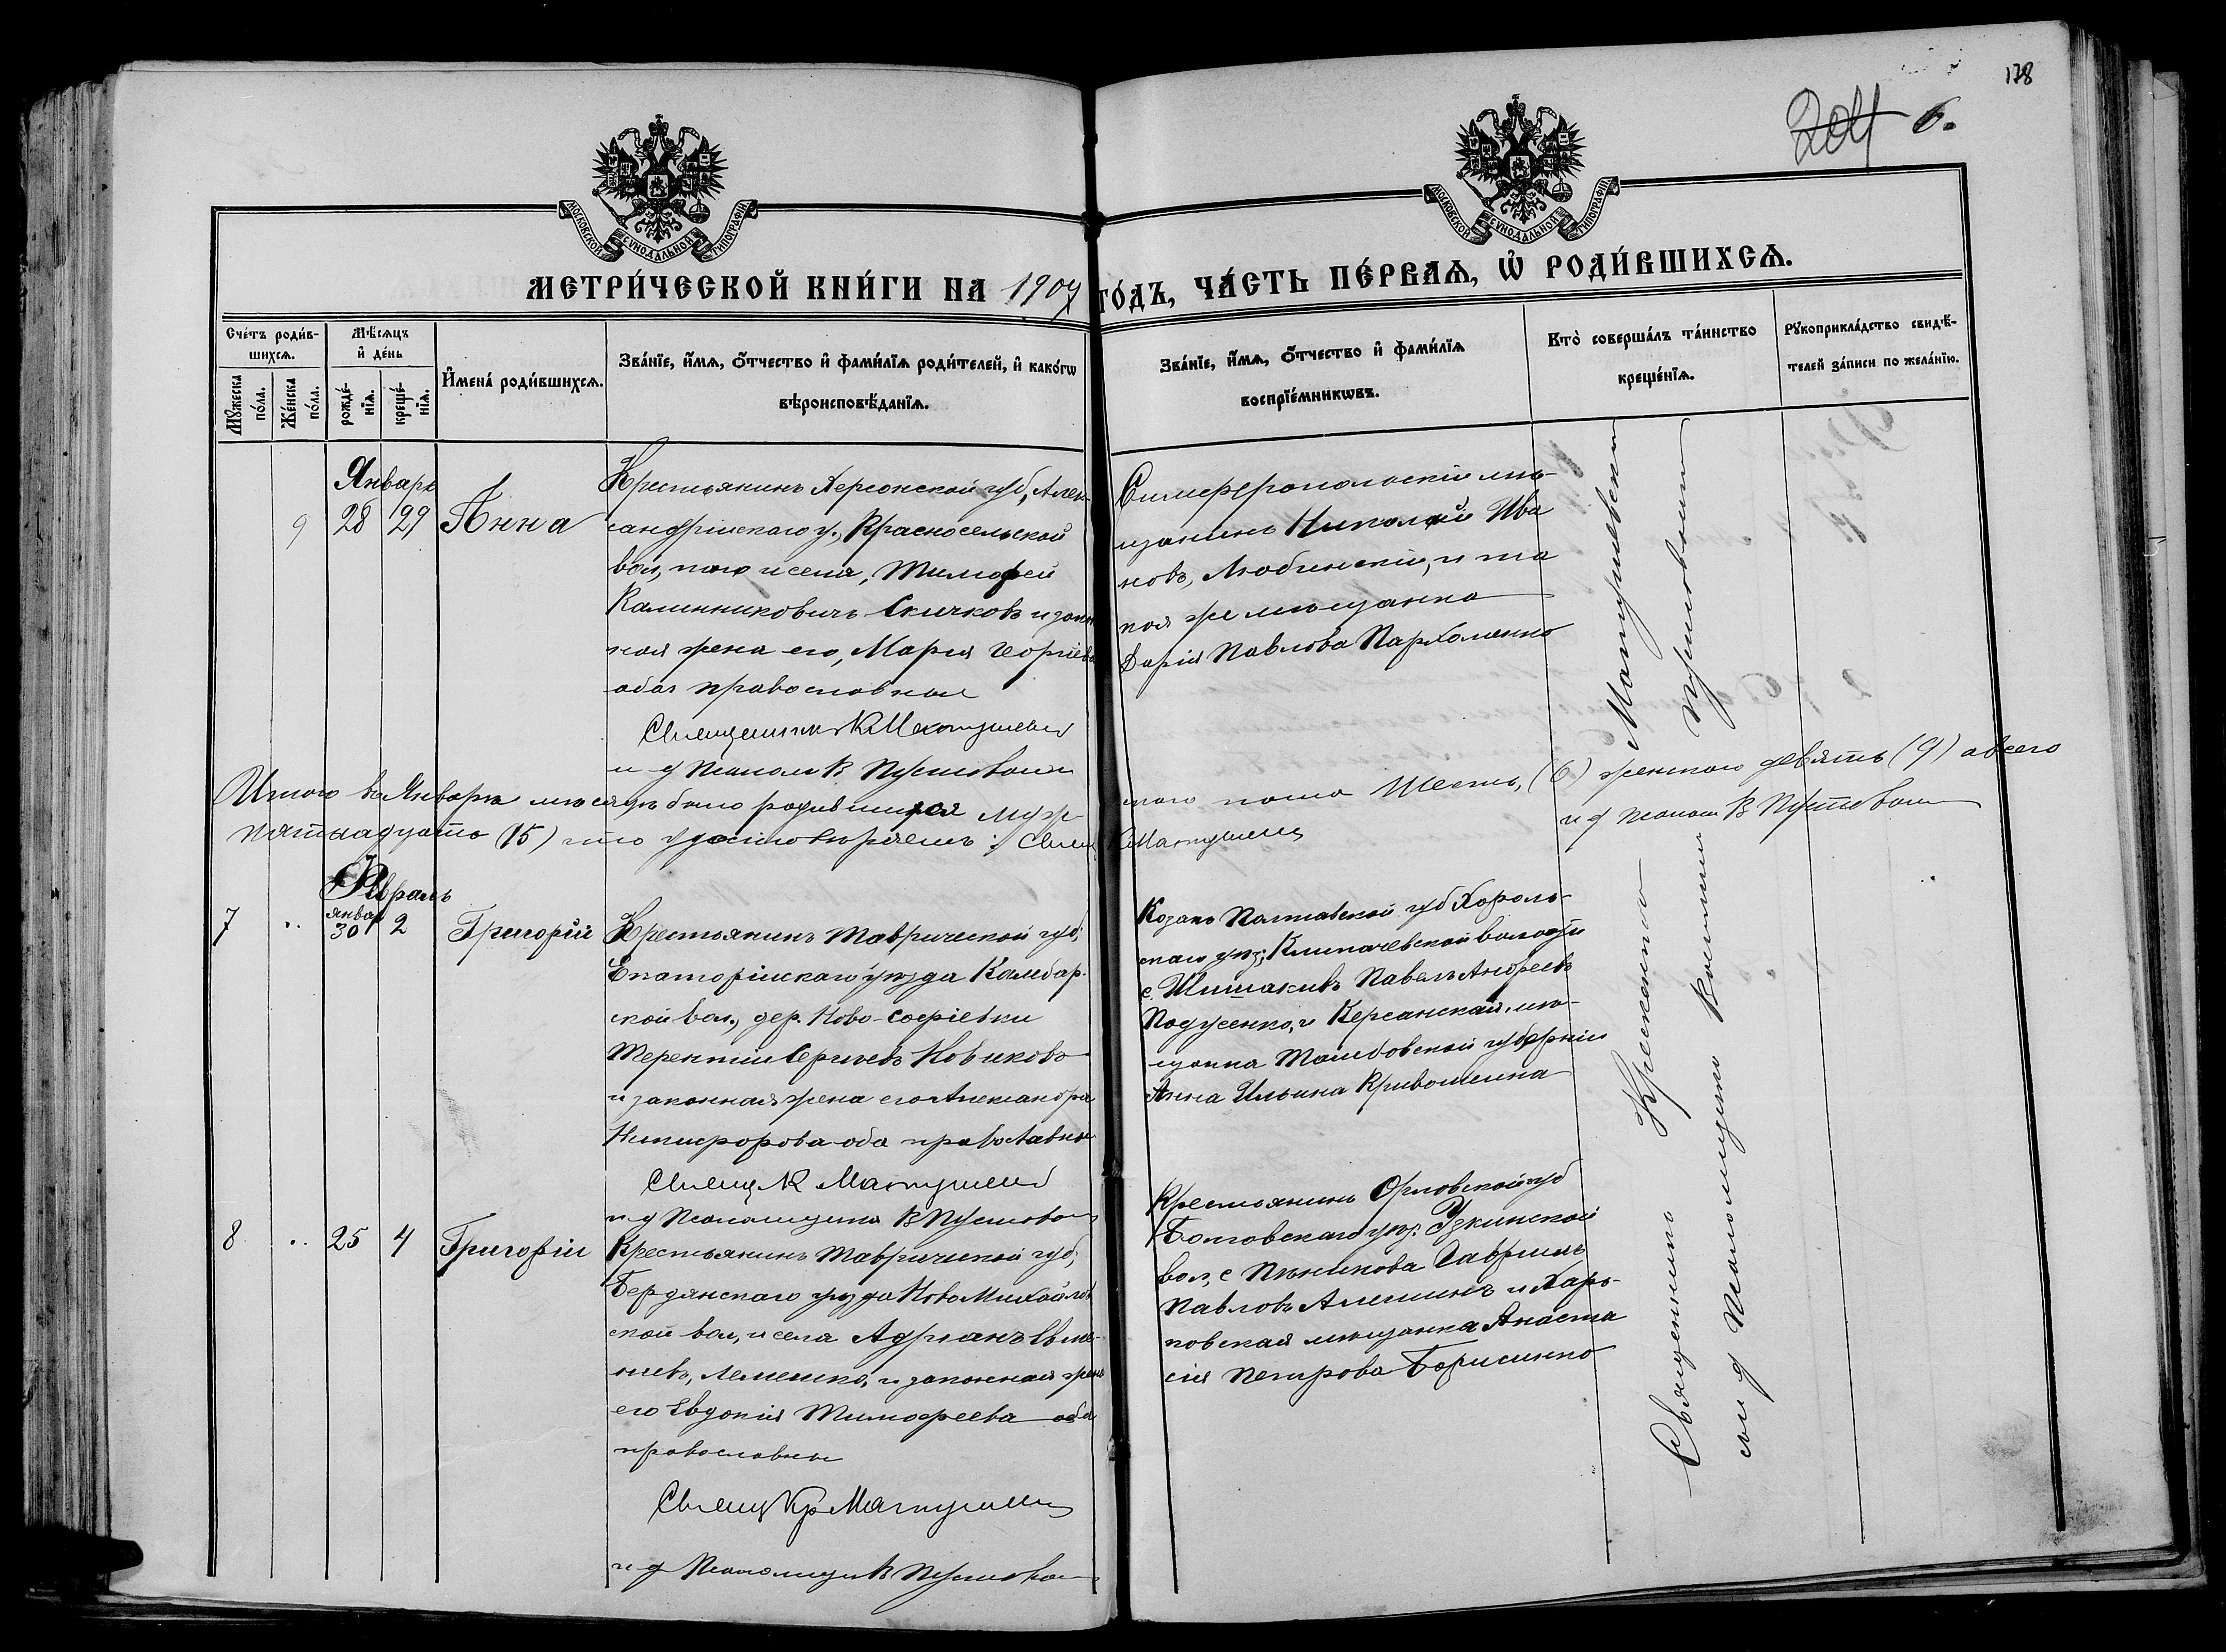 178
204 6.
МОСКОВСКОЙ СѴНОДАЛЬНОЙ ТИПОГРАФІИ
МОСКОВСКОЙ СѴНОДАЛЬНОЙ ТИПОГРАФІИ
МЕТРИ́ЧЕСКОЙ КНИ́ГИ НА 1907 ГО́ДЪ, ЧА́СТЬ ПЕ́РВАѦ, Ѡ҆ РОДИ́ВШИХСѦ.
Сче́тъ роди́в-
шихсѧ.
Мѣ́сѧцъ
и҆ де́нь
Мꙋ́жеска
по́ла.
Же́нска
по́ла.
рожде́-
нїѧ.
креще́-
нїѧ.
И҆мена́ роди́вшихсѧ.
Зва́нїе, и҆́мѧ, ѻ҆́тчество и҆ фами́лїѧ роди́телей, и҆ како́гѡ
вѣроисповѣ́данїѧ.
Зва́нїе, и҆́мѧ, ѻ҆́тчество и҆ фами́лїѧ
воспрїе́мникѡвъ.
Кто̀ соверша́лъ та́инство
креще́нїѧ.
Рꙋкоприкла́дство свидѣ́-
телей за́писи по жела́нїю.
Январь
9 28 29 Анна
Крестьянинъ Херсонской губ., Алек-
сандрійскаго у., Красносельской
вол., того и села, Тимофей
Калинниковичъ Скичковъ и закон
ная жена его, Марія Георгіева
оба православные
Священникъ К Матушев
и д Псалом В Пустовой
Симферопольскій мѣ-
щанинъ Николай Ива
новъ, Любинскій, и та
кая же мѣщанка
Дарія Павлова Пархоменко
Итого въ Январѣ мѣсяцѣ было родившихся муж-
ского пола Шесть, (6) женского девять (9) а всего
пятнадцать (15) что удостовѣряемъ: Свящ К Матушев
и д Псалом В Пустовой
Февраль
7 " январ 30 2 Григорій
Крестьянинъ Таврической губ.,
Евпаторійскаго уѣзда Камбар-
ской вол., дер. Ново-Софіевки
Терентій Сергѣевъ Новиковъ
и законная жена его Александра
Никифорова оба православные
Свящ К Матушев
и д Псаломщика В Пустовой
Козакъ Полтавской губ Хороль-
скаго уѣз., волости
с. Шишакивъ Павелъ Андреевъ
Подусенко, и Керсанская, мѣ-
щанка Тамбовской губерніи
Анна Ильина Кривошеина
8 " 25 4 Григорій
Крестьянинъ Таврической губ.,
Бердянскаго уѣзда Ново Михайлов
ской вол., и села Адріанъ Евме-
ніевъ, Лемешко, и законная жена
его Евдокія Тимофеева оба
православны
Свящ Кр Матушев
и д Псаломщ В Пустовой
Крестьянинъ Орловской губ
Болховскаго уѣз. Узкинской
вол., с Пѣникова Гавріилъ
Павловъ Алешинъ и Харь-
ковская мѣщанка Анаста
сія Петрова Борисенко
Священникъ Крискентъ Матушевскій
съ и д Псаломщика Пустовымъ